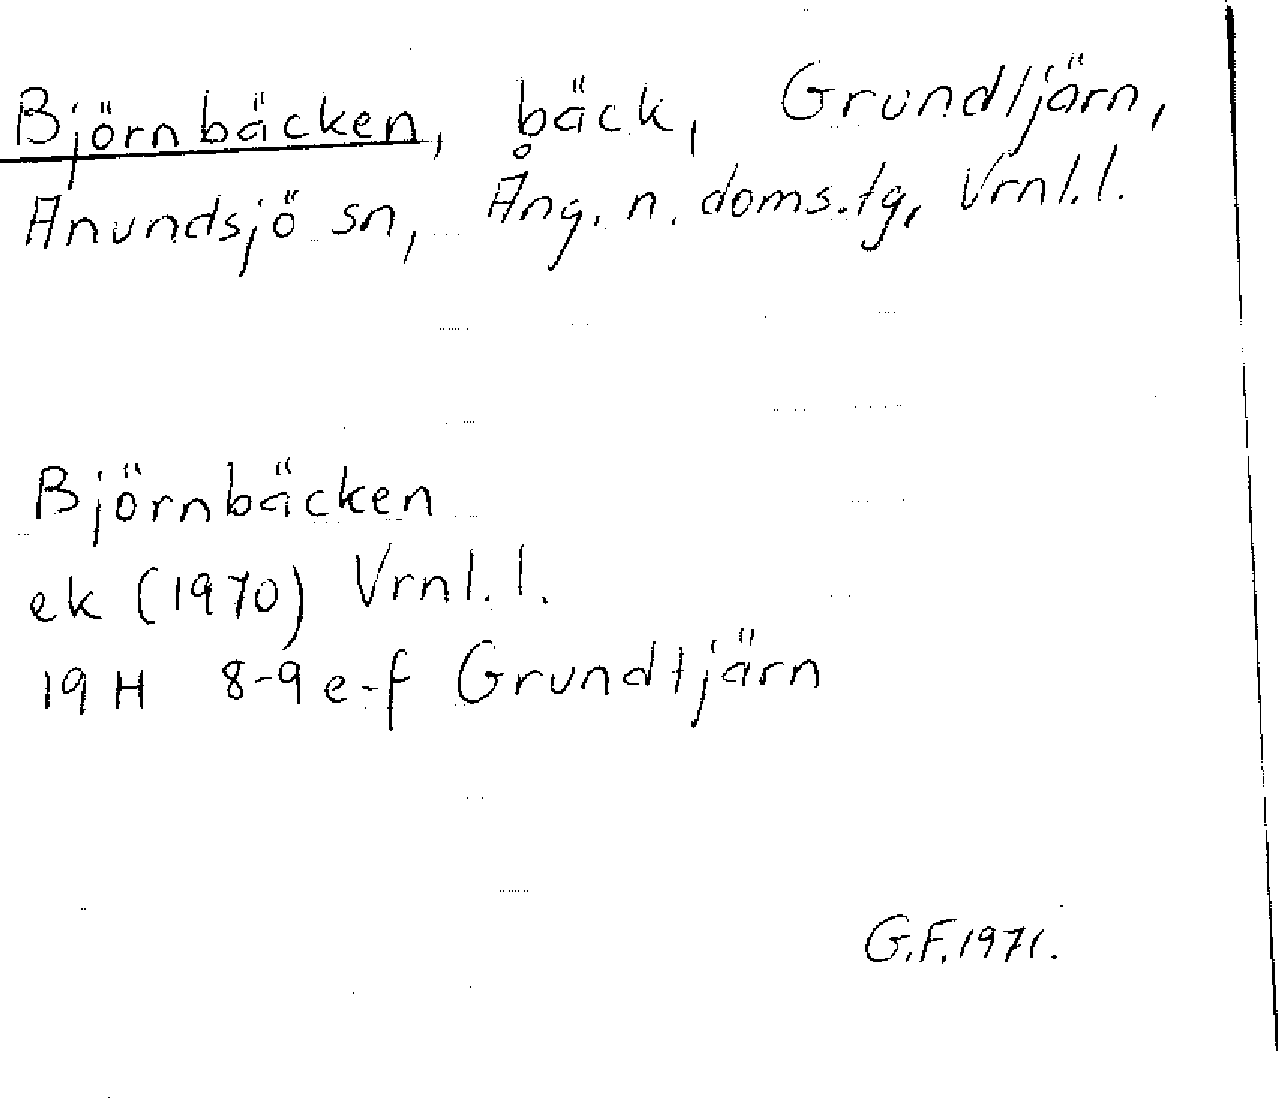 Björnbäcken, bäck, Grundtjärn,
Anundsjö sn, Ång. n. doms.tg, Vrnl.l.
Björnbäcken
ek (1970) Vrnl.l.
19 H 8-9 e-f Grundtjärn
G.F.1971.